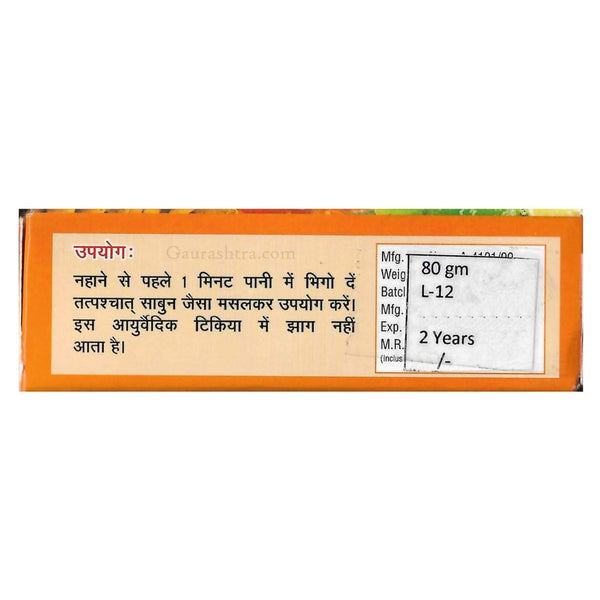 उपयोगः
Gaurashtra.com
नहाने से पहले 1 मिनट पानी में भिगो दें
तत्पश्चात् साबुन जैसा मसलकर उपयोग करें।
इस आयुर्वेदिक टिकिया में झाग नहीं
आता है।
Mfg.
Weig 80 gm
Batcl L-12
Mfg.
Exp. 2 Years
M.R. /-
(Inclus